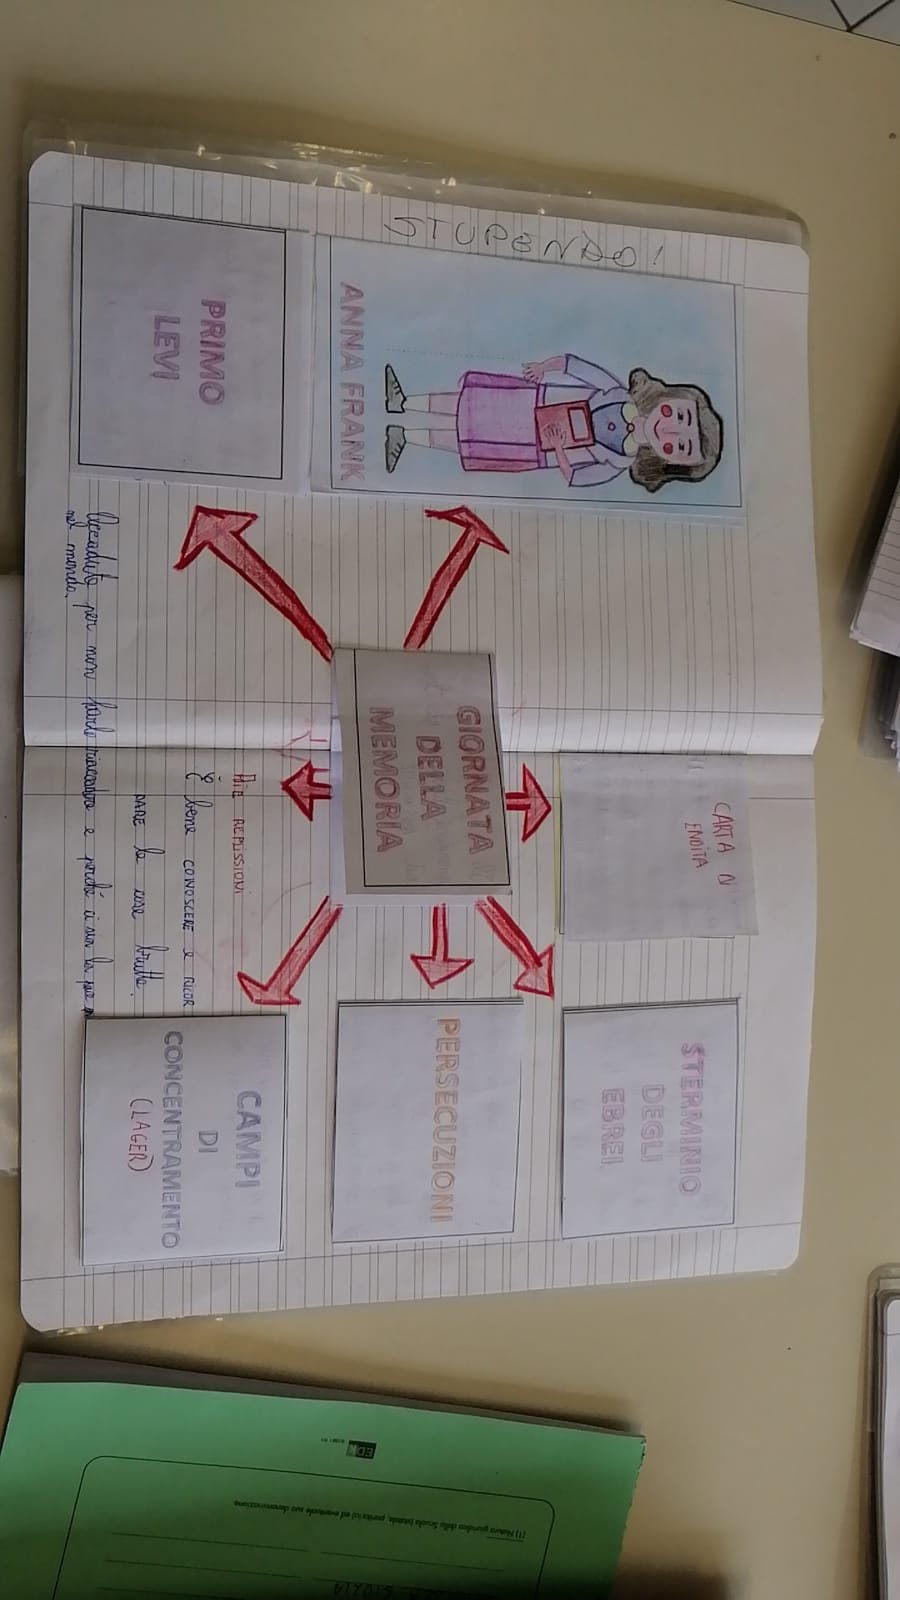 STUPENDO!
ANNA FRANK
PRIMO
LEVI
GIORNATA
DELLA
MEMORIA
CARTA N
ENDITA
STERMINIO
DEGLI
EBREI
PERSECUZIONI
CAMPI
DI
CONCENTRAMENTO
(LAGER)
MIE REPISSIONI
È bene CONOSCERE E RICOR
DARE le cose brutte.
per non farlo riaccadere e perché ci sia la
nel mondo.
ED
(1) Natura giuridica della Scuola (statale, paritaria) ed eventuale sua denominazione